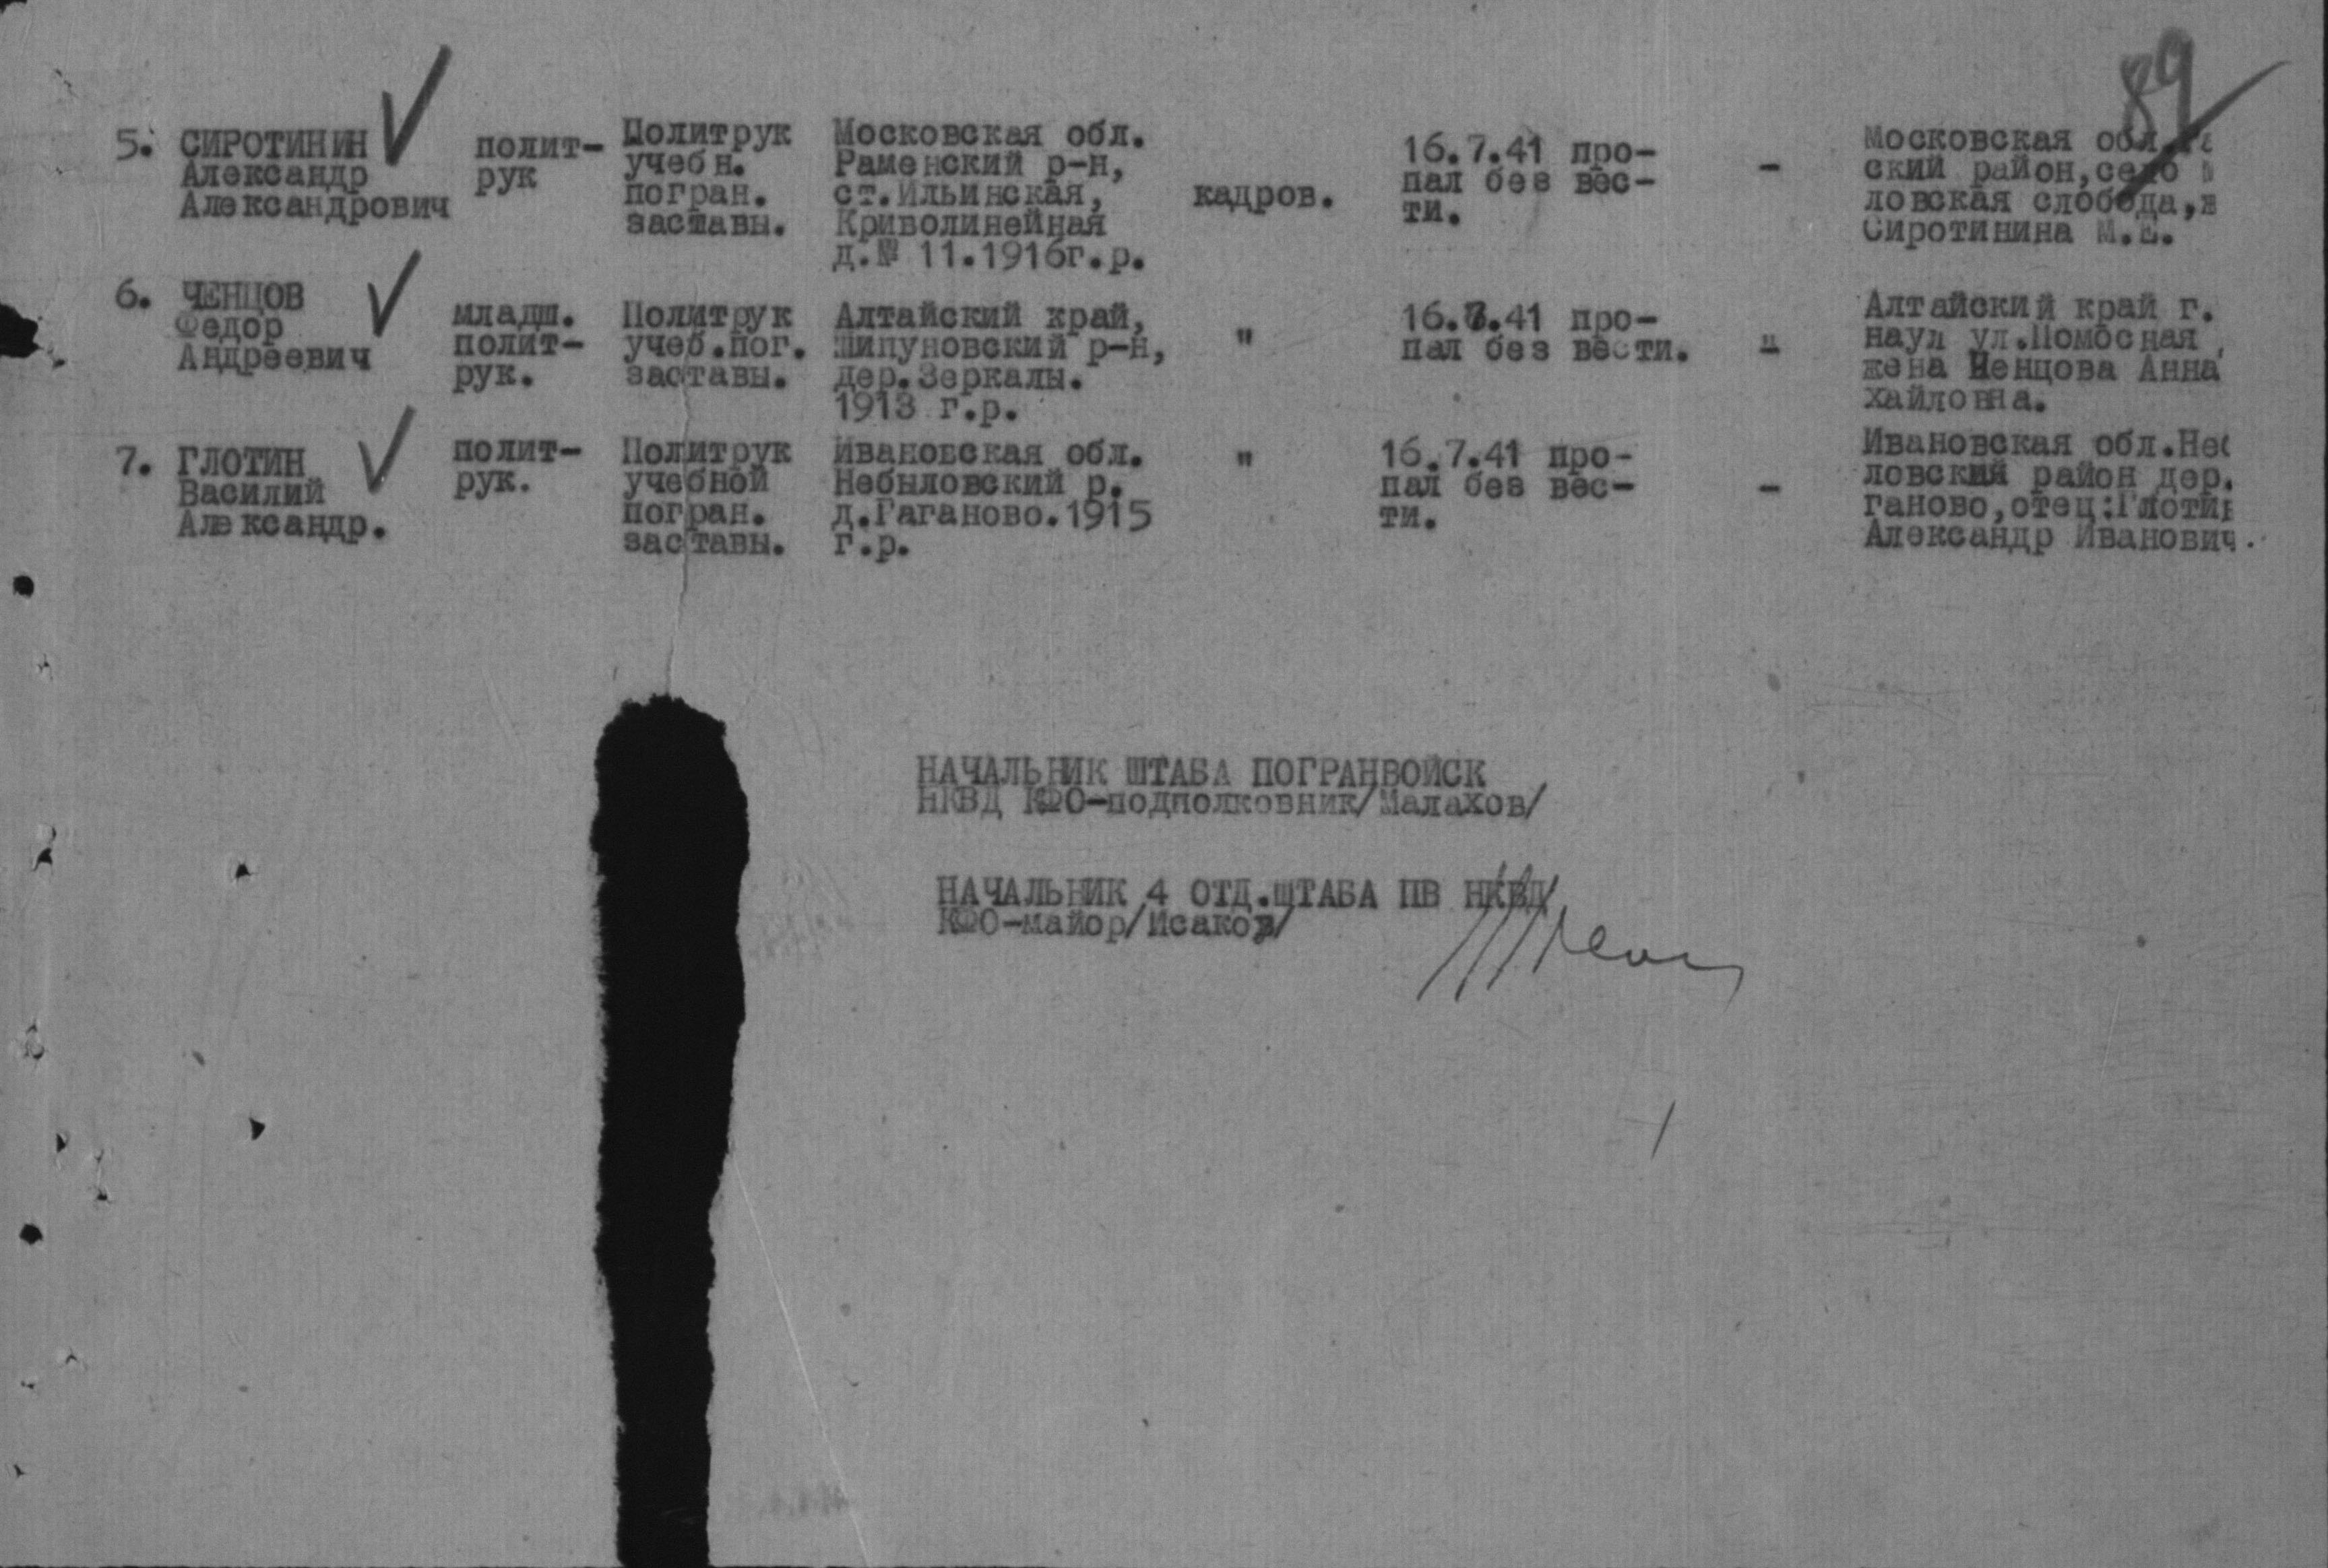 89
5. СИРОТИНИН
Александр
Александрович
полит-
рук
Политрук
учебн.
погран.
заставы.
Московская обл.
Раменский р-н,
ст.Ильинская,
Криволинейная
д.№ 11.1916г.р.
кадров.
16.7.41 про-
пал без вес-
ти.
-
Московская обл.
ский район,село
ловская слобода,
Сиротинина М.Е.
6. ЧЕНЦОВ
Федор
Андреевич
младш.
полит-
рук.
Политрук
учеб.пог.
заставы.
Алтайский край,
Шипуновский р-н,
дер.Зеркалы.
1913 г.р.
"
16.7.41 про-
пал без вести.
-
Алтайский край г.
наул ул.
жена Ченцова Анна
хайловна.
7. ГЛОТИН
Василий
Александр.
полит-
рук.
Политрук
учебной
погран.
заставы.
Ивановская обл.
Небыловский р.
д.Гаганово.1915
г.р.
"
16.7.41 про-
пал без вес-
ти.
-
Ивановская обл.Не
ловский район дер.
ганово,отец:Глотин
Александр Иванович.
НАЧАЛЬНИК ШТАБА ПОГРАНВОЙСК
НКВД КФО-подполковник/Малахов/
НАЧАЛЬНИК 4 ОТД.ШТАБА ПВ НКВД
КФО-майор/Исаков/